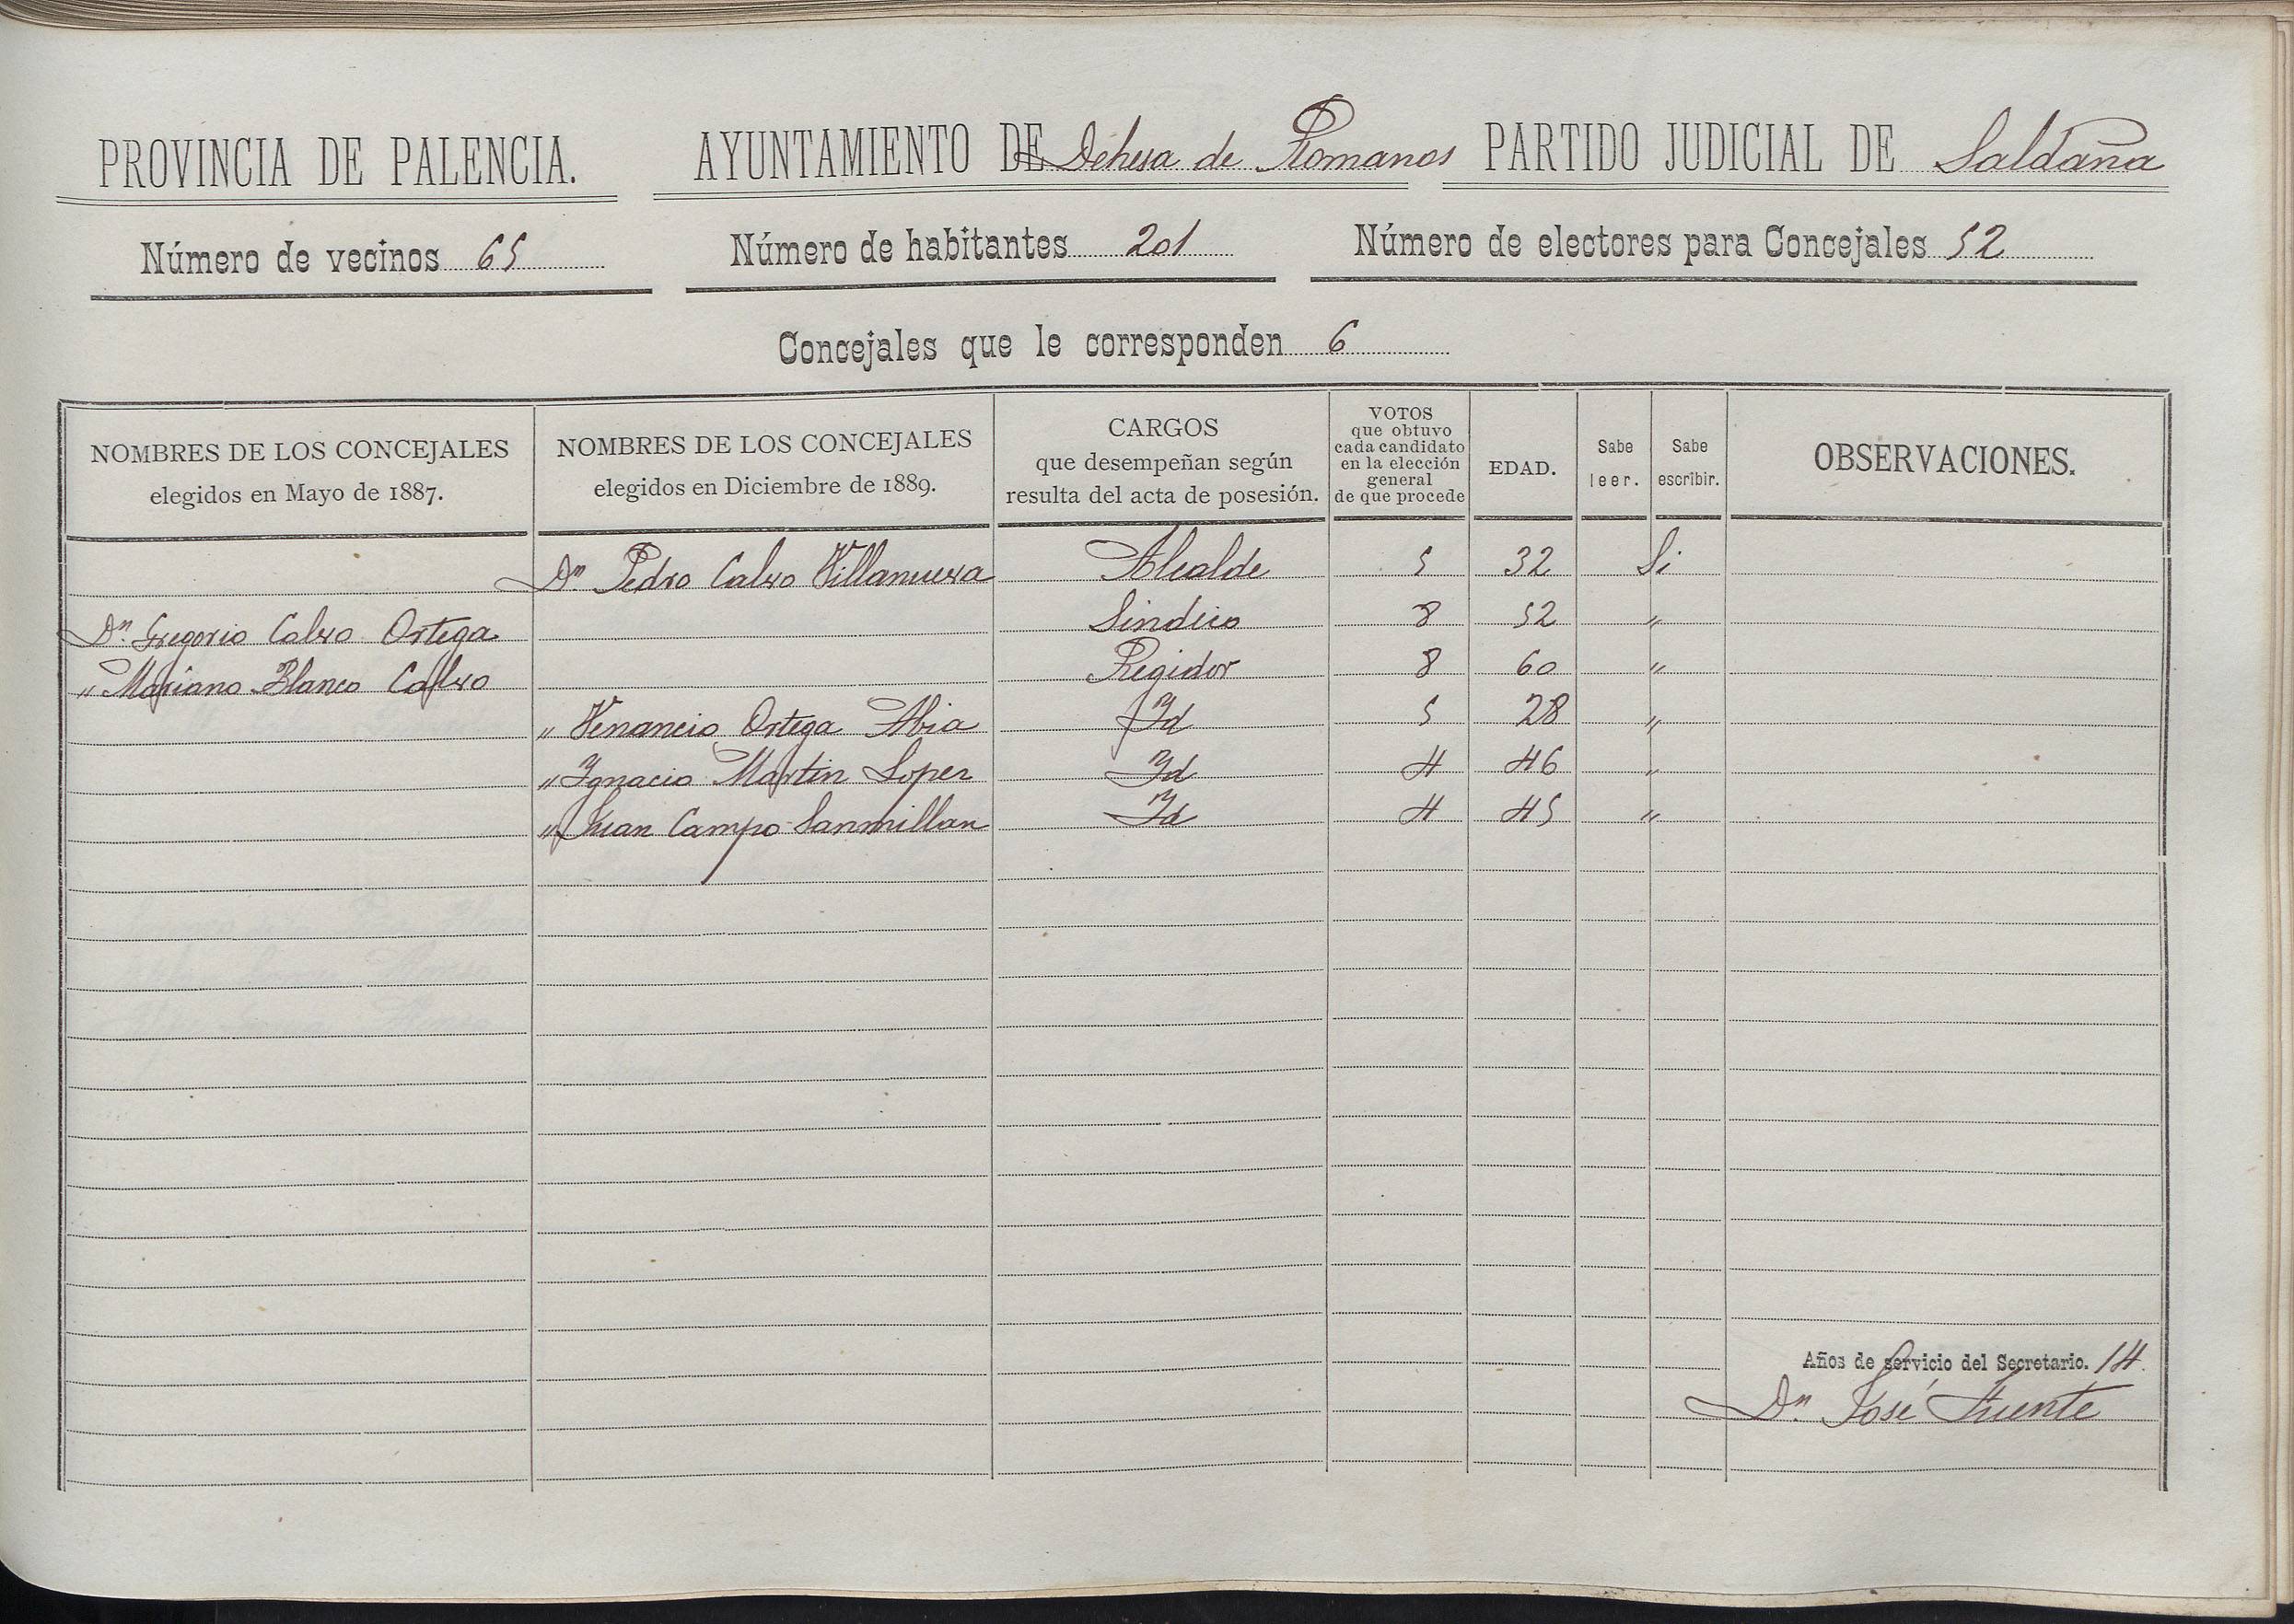 PROVINCIA DE PALENCIA. AYUNTAMIENTO DE Dehesa de Romanos PARTIDO JUDICIAL DE Saldaña
Número de vecinos 65 Número de habitantes 201 Número de electores para Concejales 52
Concejales que le corresponden 6
NOMBRES DE LOS CONCEJALES elegidos en Mayo de 1887. NOMBRES DE LOS CONCEJALES elegidos en Diciembre de 1889. CARGOS que desempeñan según resulta del acta de posesión. VOTOS que obtuvo cada candidato en la elección general de que procede EDAD. Sabe leer. Sabe escribir. OBSERVACIONES.
Dn. Pedro Calvo Villanueva Alcalde 5 32 Si
Dn. Gregorio Calvo Ortega Sindico 8 52 "
" Mariano Blanco Calvo Regidor 8 60 "
" Venancio Ortega Abia Id 5 28 "
" Ignacio Martin Lopez Id 4 46 "
" Juan Campo Sanmillan Id 4 45 "
Años de servicio del Secretario. 14.
Dn. José Fuente